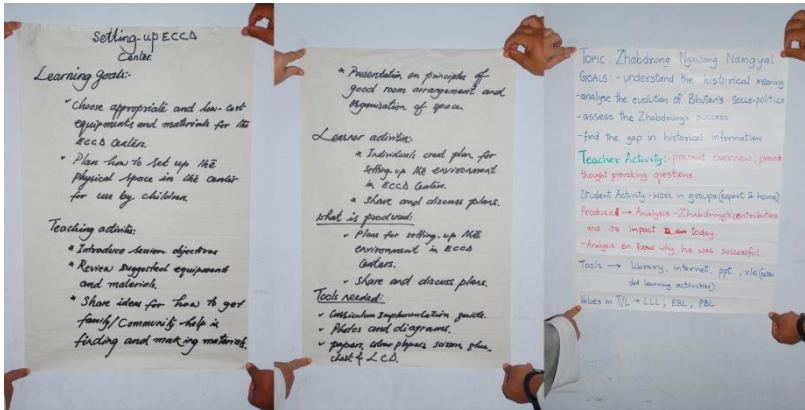 Setting-up ECCD
Center.
Learning goals:-
Choose appropriate and low-cost
equipments and materials for the
ECCD Centers.
Plan how to set up the
Physical space in the center
for use by children.
Teaching activities:
* Introduce session objectives
* Review suggested equipments
and materials.
* Share ideas for how to get
family/Community help in
finding and making materials.
* Presentation on principles of
good room arrangement and
Organization of space.
Learner activities:
* Individuals creat plan for
setting-up the environment
in ECCD Center.
* share and discuss plans.
What is produced:
Plans for setting-up the
environment in ECCD
Centers.
share and discuss plans.
Tools needed:
Curriculum implementation guide.
Photos and diagrams.
papers, colour papers, scissors, glue,
chart & LCD.
TOPIC: Zhabdrung Ngawang Namgyal
GOALS: - understand the historical meaning
- analyse the evolution of Bhutan's socio-politics
- assess the Zhabdrung's success
- find the gap in historical information
Teacher Activity:- present overview, provide
thought provoking questions.
Student Activity - Work in groups (expert & home)
Produced → Analysis - Zhabdrung's contributions
and its impact today
- Analysis on how why he was successful.
Tools → library, internet, ppt, vle
ded learning activities)
Values in T/L → LLL, EBL, PBL